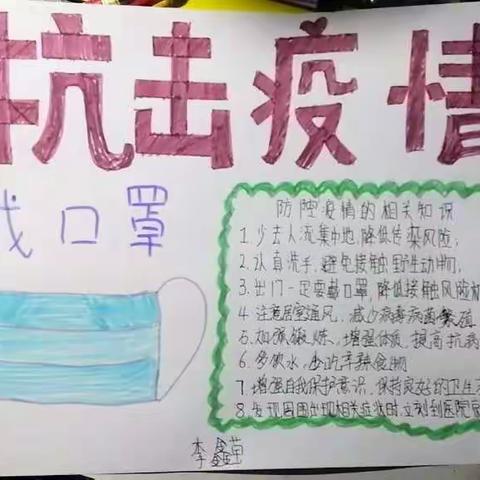 抗击疫情
戴口罩
防控疫情的相关知识
1.少去人流集中地,降低传染风险;
2.认真洗手,避免接触野生动物;
3.出门一定要戴口罩,降低接触风险
4.注意居室通风,减少病毒病菌繁殖
5.加强锻炼,增强体质,提高抗病
6.多饮水,少吃辛辣食物
7.增强自我保护意识,保持良好的卫生
8.发现周围出现相关症状时,立刻到医院
李鑫